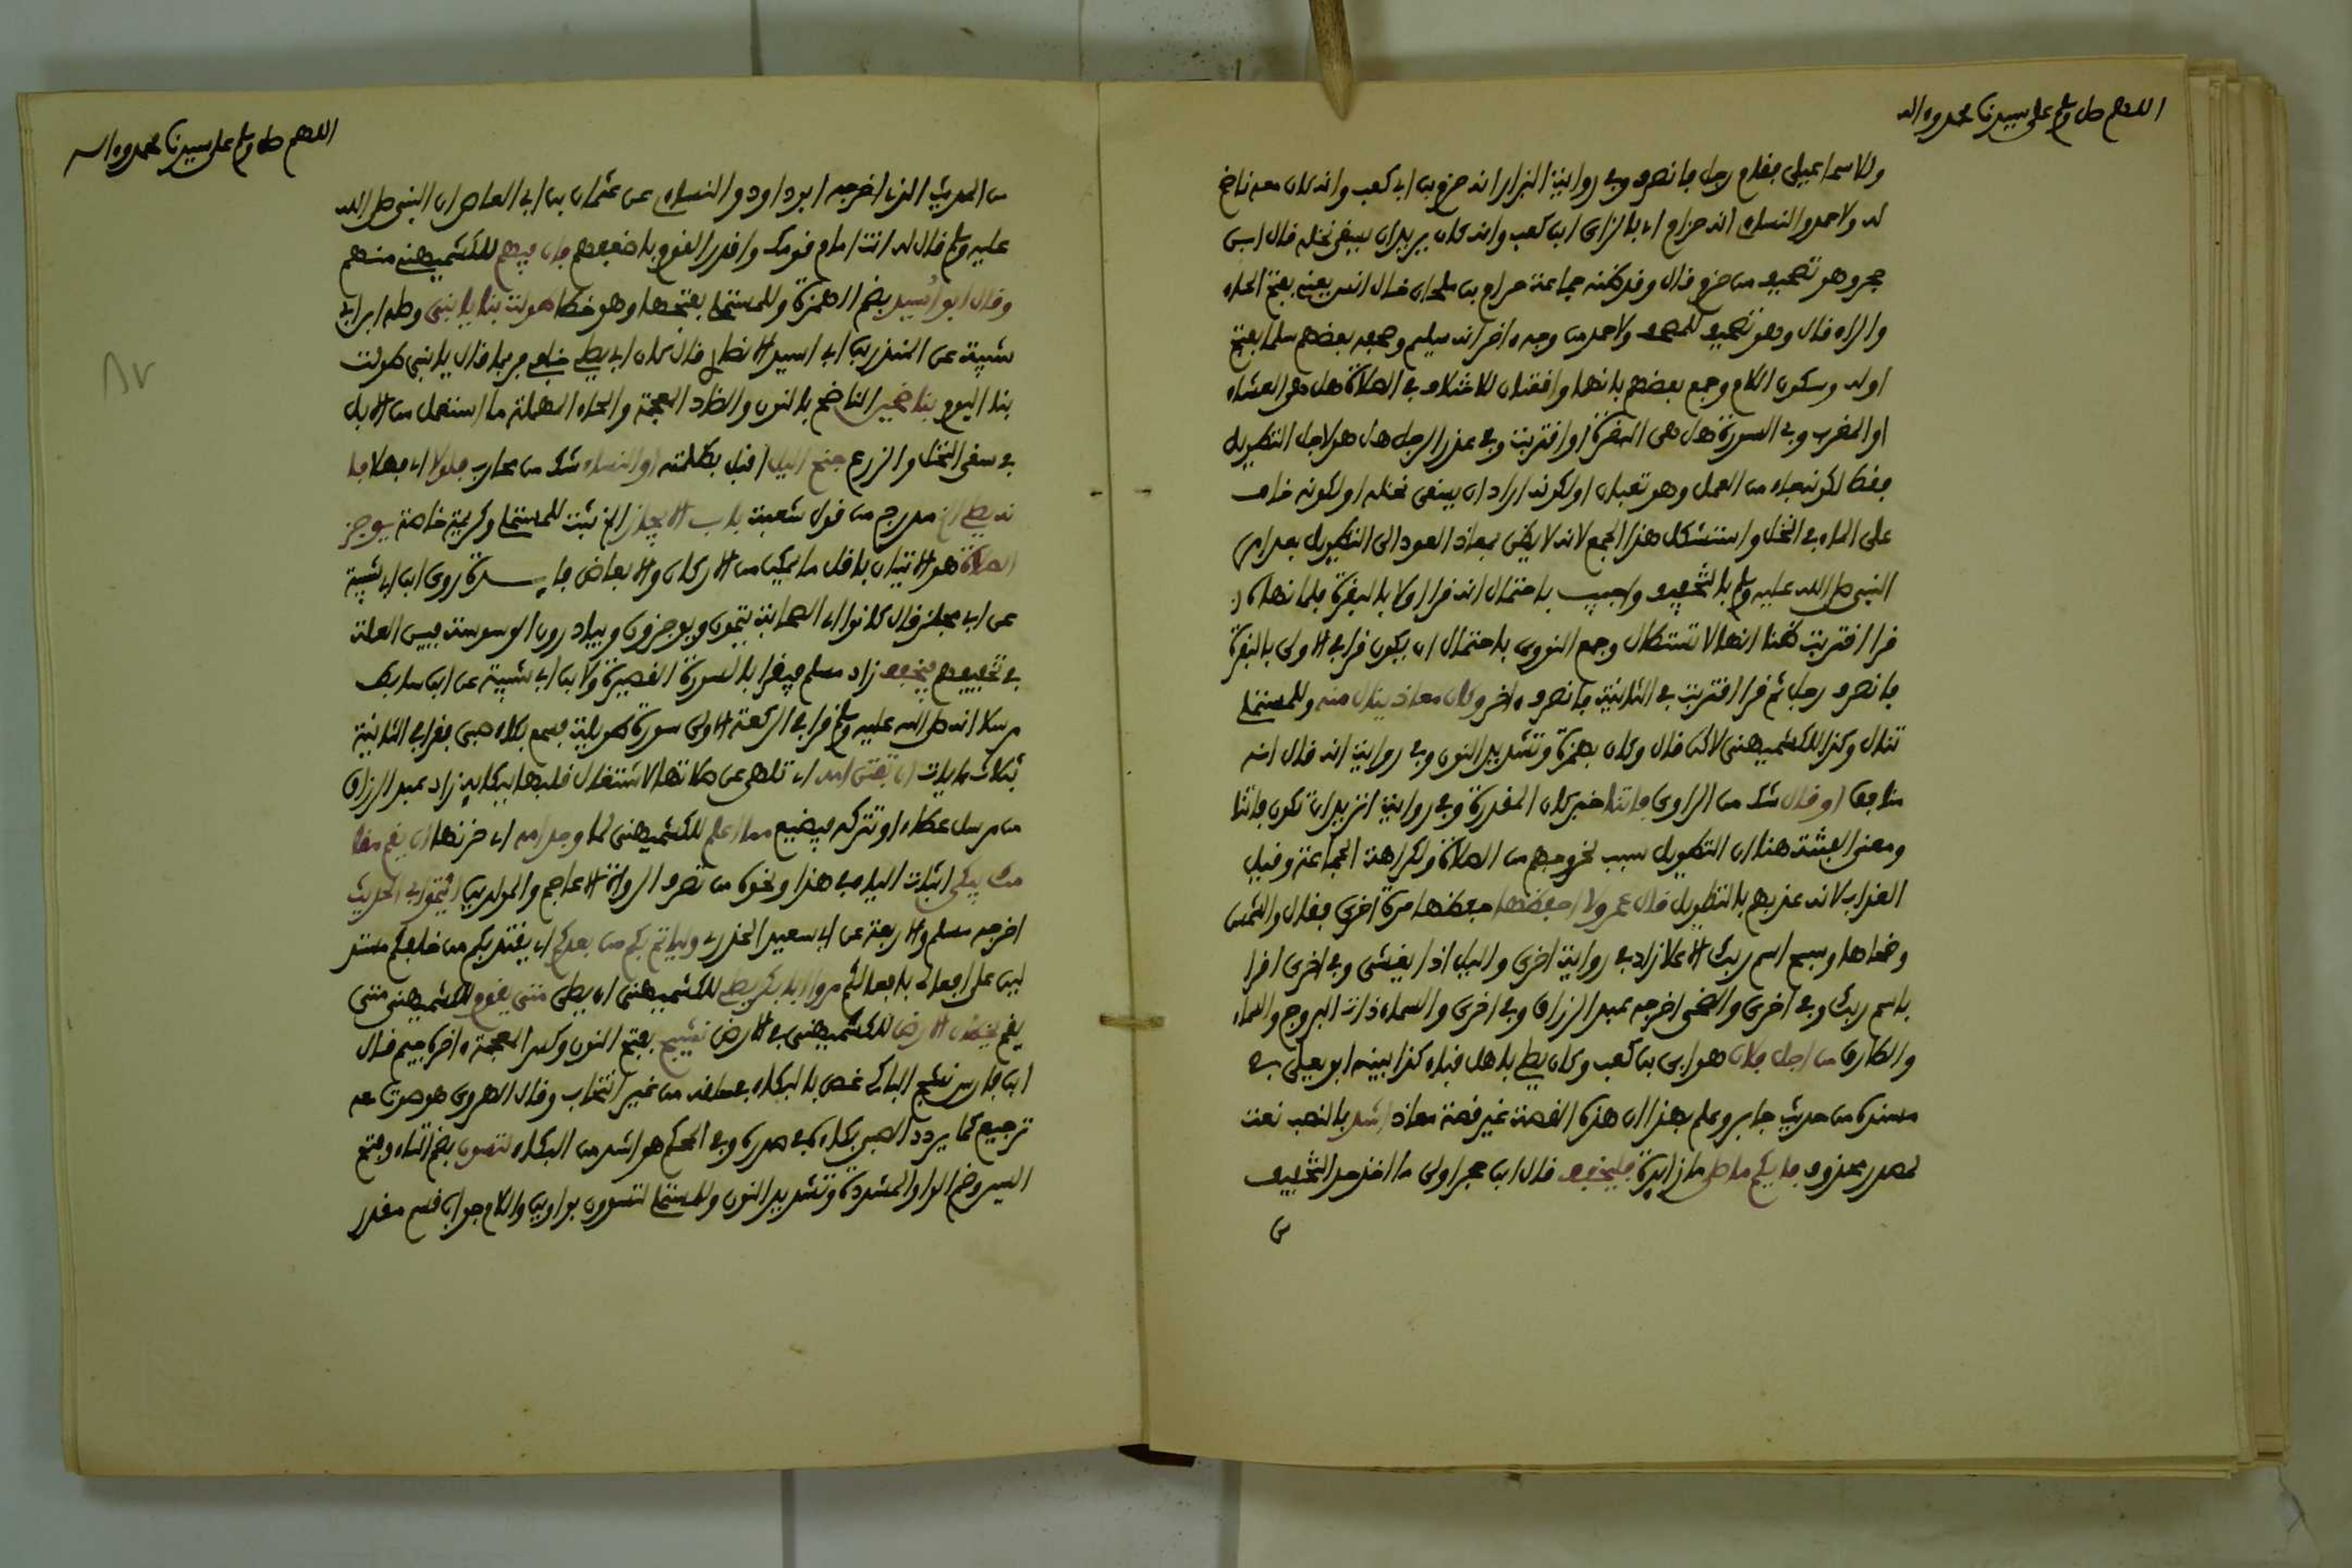 اللهم صل وسلم على سيدنا محمد وءاله
وللاسماعيلي فقام رجل فانصرف وفي رواية البزار انه حزم بن ابي كعب وانه كان معه ناضح
له ولاحمد والنساءي انه حزام اي بالزاي ابن كعب وانه كان يريد ان يسقي نخله قال ابن
حجر وهو تصحيف من حزم قال وقد ظنه جماعة حرام بن ملحان خال انس يعني بفتح الحاء
والراء قال وهو تصحيف للمصحف ولاحمد من وجه ءاخر انه سليم وصحفه بعضهم سلما بفتح
اوله وسكون اللام وجمع بعضهم بانهما واقعتان للاختلاف في الصلاة هل هي العشاء
او المغرب وفي السورة هل هي البقرة او اقتربت وفي عذر الرجل هل هو لاجل التطويل
فقط لكونه جاء من العمل وهو تعبان او لكونه اراد ان يسقي نخله او لكونه خاف
على الماء في النخل واستشكل هذا الجمع لانه لا يظن بمعاذ العود الى التطويل بعد امر
النبي صلى الله عليه وسلم بالتخفيف واجيب باحتمال انه قرا اولا بالبقرة فلما نهاه
قرا اقتربت ظنا انها لا تستطال وجمع النووي باحتمال ان يكون قرا في الاولى بالبقرة
فانصرف رجل ثم قرا اقتربت في الثانية فانصرف ءاخر وكان معاذ ينال منه وللمستملي
تناول وكذا للكشميهني لاكن قال وكان بهمزة وتشديد النون وفي رواية انه قال انه
منافق او قال شك من الراوي فاتنا خبر كان المقدرة وفي رواية اتريد ان تكون فاتنا
ومعنى الفتنة هنا ان التطويل سبب لخروجهم من الصلاة ولكراهة الجماعة وقيل
العذاب لانه عذبهم بالتطويل قال عمرو لا احفظهما حفظهما مرة اخرى فقال والشمس
وضحاها وسبح اسم ربك الاعلا زاد في رواية اخرى والليل اذا يغشى وفي اخرى اقرا
باسم ربك وفي اخرى والضحى اخرجه عبد الرزاق وفي اخرى والسماء ذات البروج والسماء
والطارق من اجل فلان هو ابي بن كعب وكان يصلي باهل قباء كذا بينه ابو يعلى في
مسنده من حديث جابر وعلم بهذا ان هذه القصة غير قصة معاذ اشد بالنصب نعت
لمصدر محذوف فايكم ما صلى ما زائدة فليخفف قال ابن حجر اولى ما اخذ حد التخفيف
من
اللهم صل وسلم على سيدنا محمد وءاله
من الحديث الذي اخرجه ابو داود والنساءي عن عثمان بن ابي العاص ان النبي صلى الله
عليه وسلم قال له انت امام قومك واقدر القوم باضعفهم فان فيهم للكشميهني منهم
وقال ابو اسيد بضم الهمزة وللمستملي بفتحها وهو خطا طولت بنا يا بني وصله ابن ابي
شيبة عن المنذر بن ابي اسيد الانصاري قال كان ابي يصلي خلفي فربما قال يا بني طولت
بنا اليوم بناضحين الناضح بالنون والضاد المعجمة والحاء المهملة ما استعمل من الابل
في سقي النخل والزرع جنح الليل اقبل بظلمته او النساء شك من محارب فلولا اي فهلا فا
نه يصلي الخ مدرج من قول شعبة باب الايجاز الخ ثبت للمستملي وكريمة خاصة يوجز
الصلاة هو الاتيان باقل ما يمكن من الاركان والابعاض فايدة روى ابن ابي شيبة
عن ابي مجلز قال كانوا اي الصحابة يتمون ويوجزون ويبادرون الوسوسة فبين العلة
في تخفيفهم فيخفف زاد مسلم فيقرا بالسورة القصيرة ولابن ابي شيبة عن ابن سابط
مرسلا انه صلى الله عليه وسلم قرا في الركعة الاولى سورة طويلة فسمع بكاء صبي فقرا في الثانية
بثلاث ءايات ان تفتن امه اي تلهى عن صلاتها لاشتغال قلبها ببكايه زاد عبد الرزاق
من مرسل عطاء او تتركه فيضيع مما اعلم للكشميهني لما وجد امه اي حزنها ان يقم مقا
مك يبكي اثبات الياء في هذا ونحوه من تصرف الرواة الاعاجم والمولدين ائتموا بي الحديث
اخرجه مسلم والاربعة عن ابي سعيد الخدري ولياتم بكم من بعدكم اي يقتدي بكم من خلفكم مستد
لين على افعالي بافعالكم مروا ابا بكر يصلي للكشميهني ان يصلي متى يقوم للكشميهني متى
يقم يخطان الارض للكشميهني في الارض نشيج بفتح النون وكسر المعجمة ءاخره جيم قال
ابن فارس نشج الباكي غص بالبكاء في حلقه من غير انتحاب وقال الهروي هو صوت معه
ترجيع كما يردد الصبي بكاءه في صدره وفي المحكم هو اشد من البكاء لتسون بضم التاء وفتح
السين وضم الواو المشددة وتشديد النون وللمستملي لتسوون بواوين واللام جواب قسم مقدر
٨٧